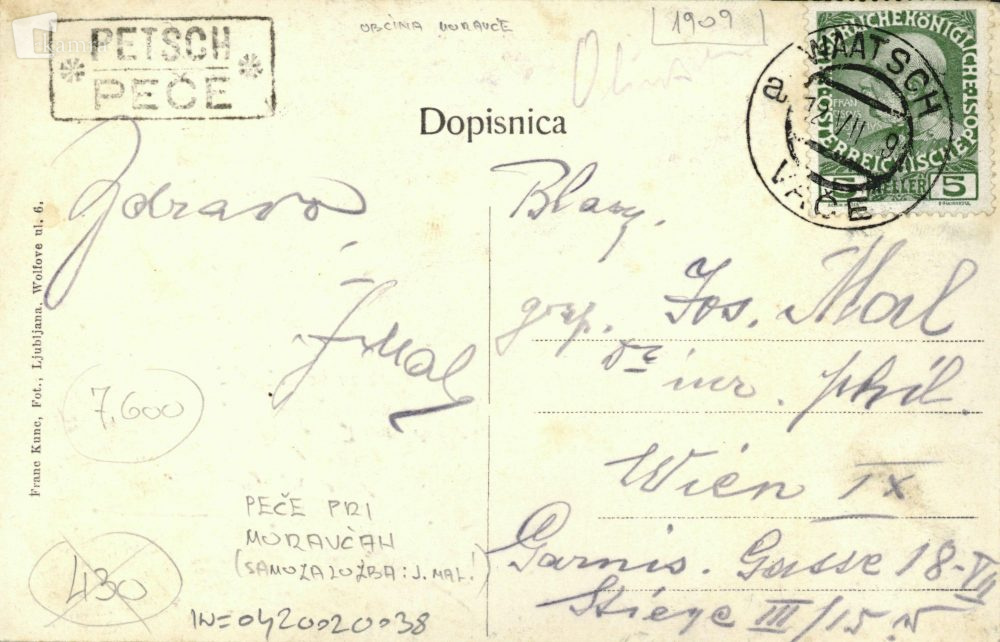 PETSCH
PEČE
OBČINA MORAVČE
1909
WAATSCH
VAČE
a
5 HELLER 5
Dopisnica
Zdravo
J. Mal
Blag.
gosp. Jos. Mal
phil.
Wien IX
Garnis. Gasse 18-VII
Stiege III/15
Franc Kunc, Fot., Ljubljana, Wolfove ul. 6.
7.600
430
PEČE PRI
MORAVČAH
(SAMOZALOŽBA: J. MAL!)
IN=0420020038